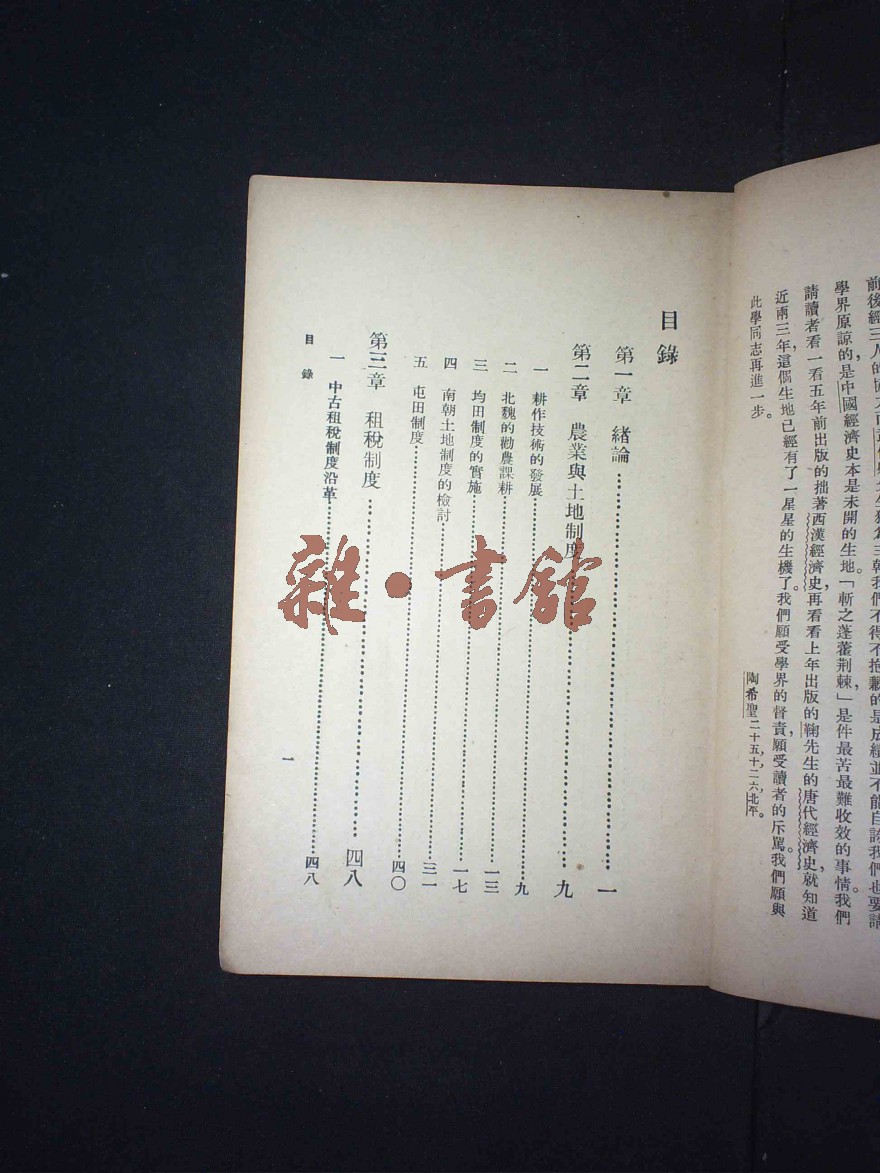 學界原諒的，是中國經濟史本是未開的生地。「斬之蓬藿荆棘」是件最苦最難收效的事情。我們
請讀者看一看五年前出版的拙著西漢經濟史，再看看上年出版的鞠先生的唐代經濟史，就知道
近兩三年，這個生地已經有了一星星的生機了。我們願受學界的督責，願受讀者的斥罵，我們願與
此學同志再進一步。
陶希聖二十五，十，二六，北平。
目錄
第一章 緒論……一
第二章 農業與土地制度……九
一 耕作技術的發展……九
二 北魏的勸農課耕……一三
三 均田制度的實施……一七
四 南朝土地制度的檢討……三一
五 屯田制度……四〇
第三章 租稅制度……四八
一 中古租稅制度沿革……四八
目錄 一
雜·書館